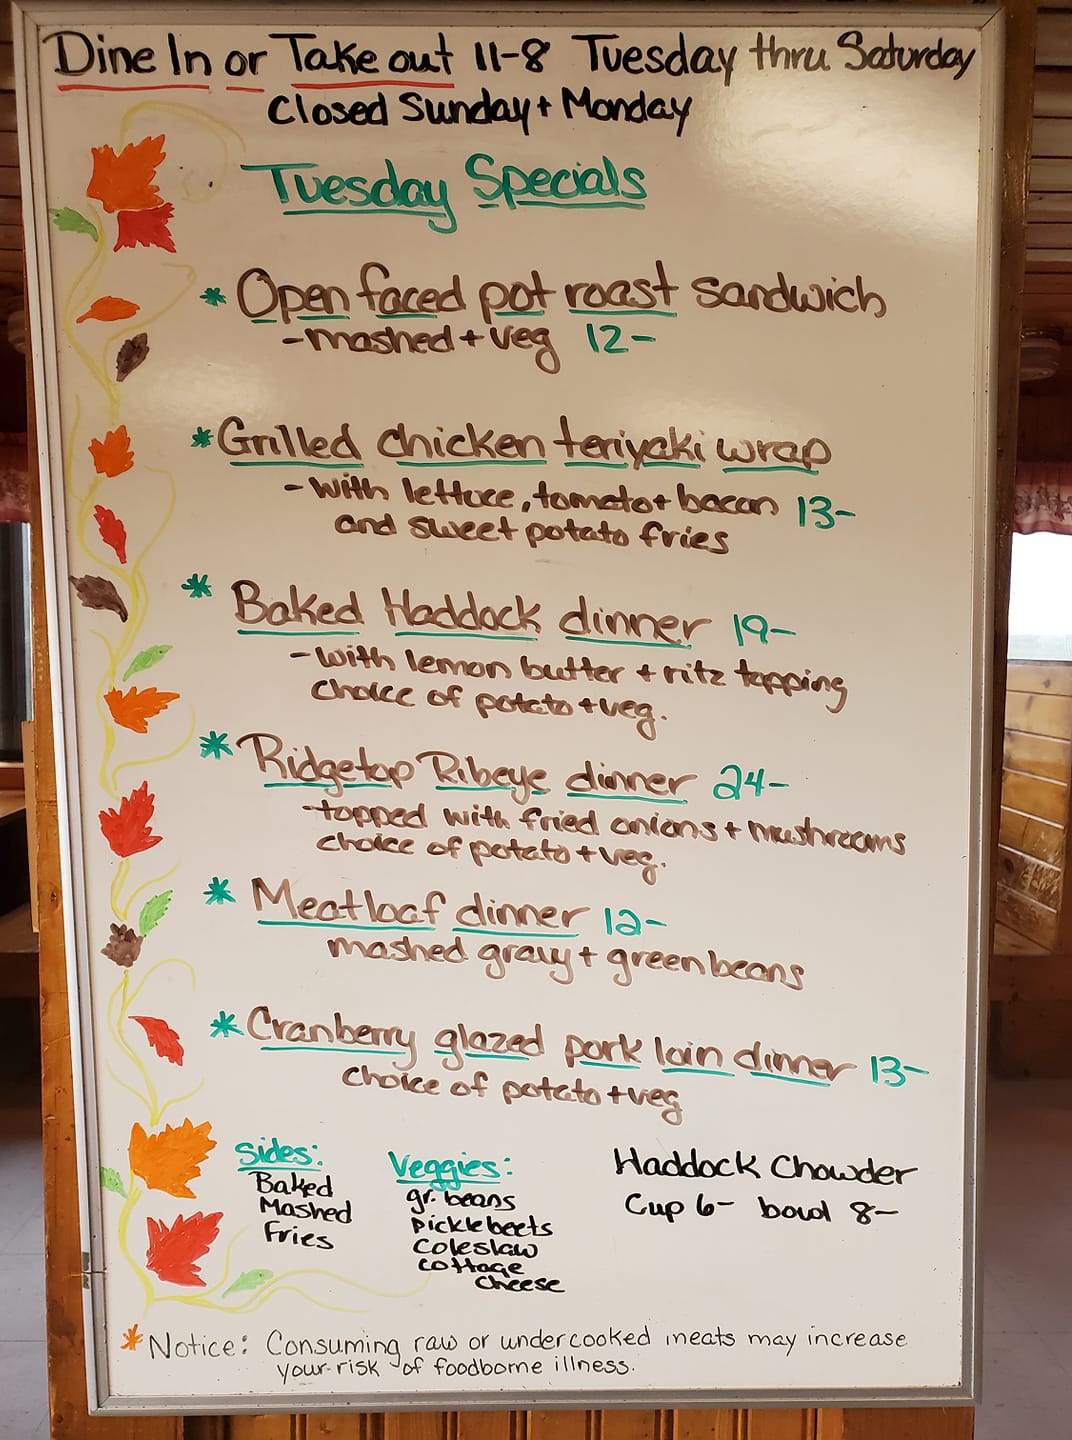 Dine In or Take out 11-8 Tuesday thru Saturday
Closed Sunday + Monday
Tuesday Specials
* Open faced pot roast sandwich
- mashed + veg 12-
* Grilled chicken teriyaki wrap
- with lettuce, tomato + bacon 13-
and sweet potato fries
* Baked Haddock dinner 19-
- with lemon butter + ritz topping
choice of potato + veg.
* Ridgetop Ribeye dinner 24-
- topped with fried onions + mushrooms
choice of potato + veg.
* Meatloaf dinner 12-
mashed gravy + green beans
* Cranberry glazed pork loin dinner 13-
choice of potato + veg
Sides:
Baked
Mashed
Fries
Veggies:
gr. beans
pickle beets
Coleslaw
cottage
cheese
Haddock Chowder
Cup 6- bowl 8-
* Notice: Consuming raw or undercooked meats may increase
your risk of foodborne illness.